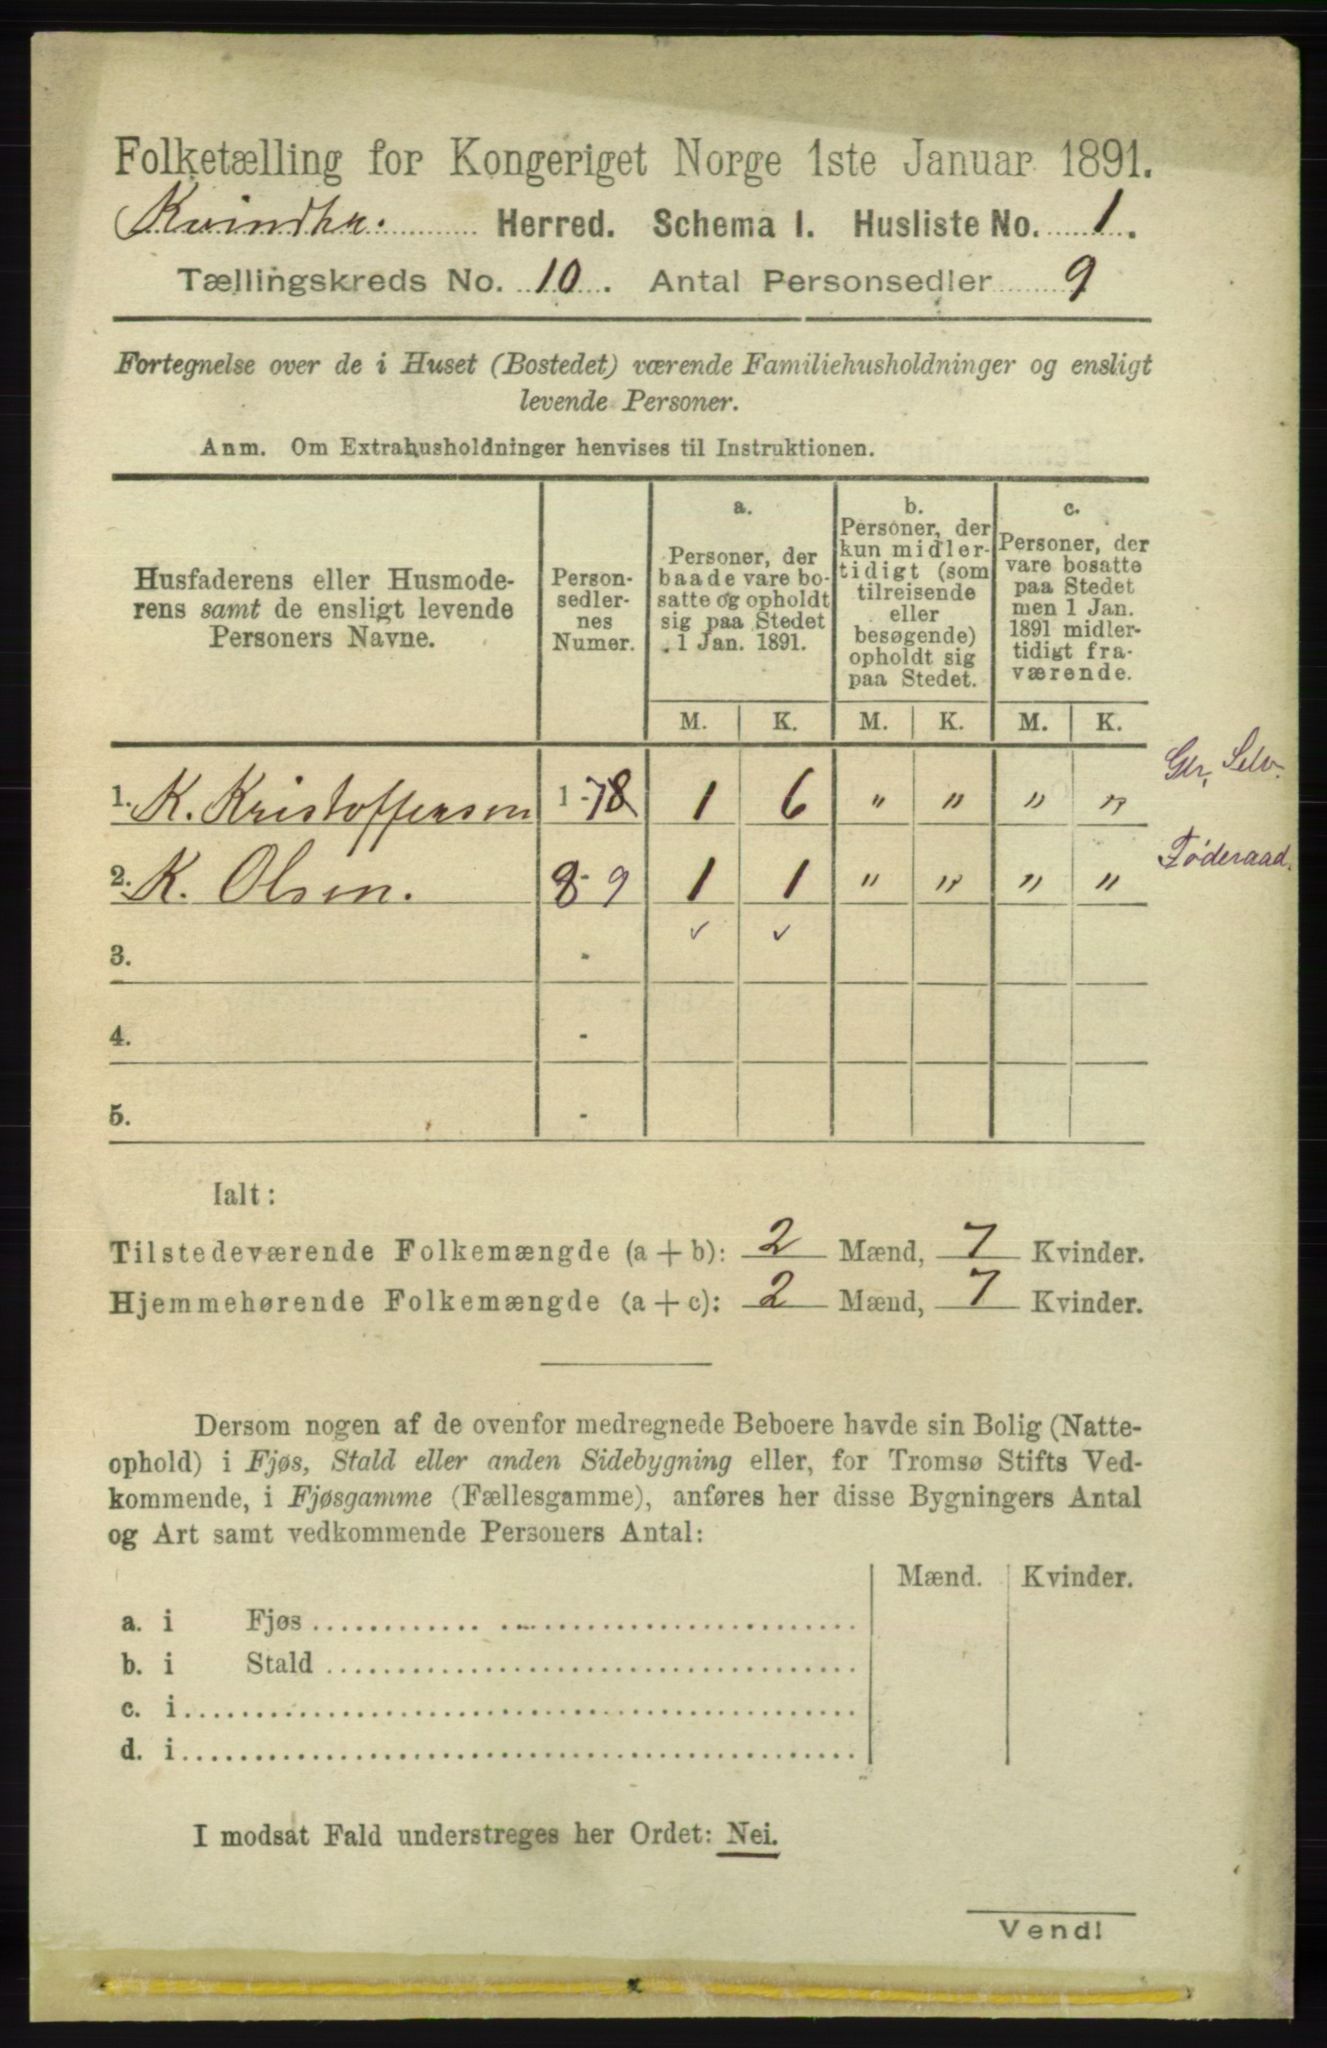 Folketælling for Kongeriget Norge 1ste Januar 1891.
Kvindhr. Herred. Schema I. Husliste No. 1.
Tællingskreds No. 10. Antal Personsedler 9
Fortegnelse over de i Huset (Bostedet) værende Familiehusholdninger og ensligt
levende Personer.
Anm. Om Extrahusholdninger henvises til Instruktionen.
Husfaderens eller Husmode-
rens samt de ensligt levende
Personers Navne.
Person-
sedler-
nes
Numer.
a.
Personer, der
baade vare bo-
satte og opholdt
sig paa Stedet
1 Jan. 1891.
b.
Personer, der
kun midler-
tidigt (som
tilreisende
eller
besøgende)
opholdt sig
paa Stedet.
c.
Personer, der
vare bosatte
paa Stedet
men 1 Jan.
1891 midler-
tidigt fra-
værende.
M. K. M. K. M. K.
1. K. Kristoffersen 1 - 7 1 6 " " " " Gbr, Selv.
2. K. Olsen. 8 - 9 1 1 " " " " Føderaad.
✓ ✓
3. -
4. -
5. -
Ialt:
Tilstedeværende Folkemængde (a + b): 2 Mænd, 7 Kvinder.
Hjemmehørende Folkemængde (a + c): 2 Mænd, 7 Kvinder.
Dersom nogen af de ovenfor medregnede Beboere havde sin Bolig (Natte-
ophold) i Fjøs, Stald eller anden Sidebygning eller, for Tromsø Stifts Ved-
kommende, i Fjøsgamme (Fællesgamme), anføres her disse Bygningers Antal
og Art samt vedkommende Personers Antal:
Mænd. Kvinder.
a. i Fjøs
b. i Stald
c. i
d. i
I modsat Fald understreges her Ordet: Nei.
Vend!